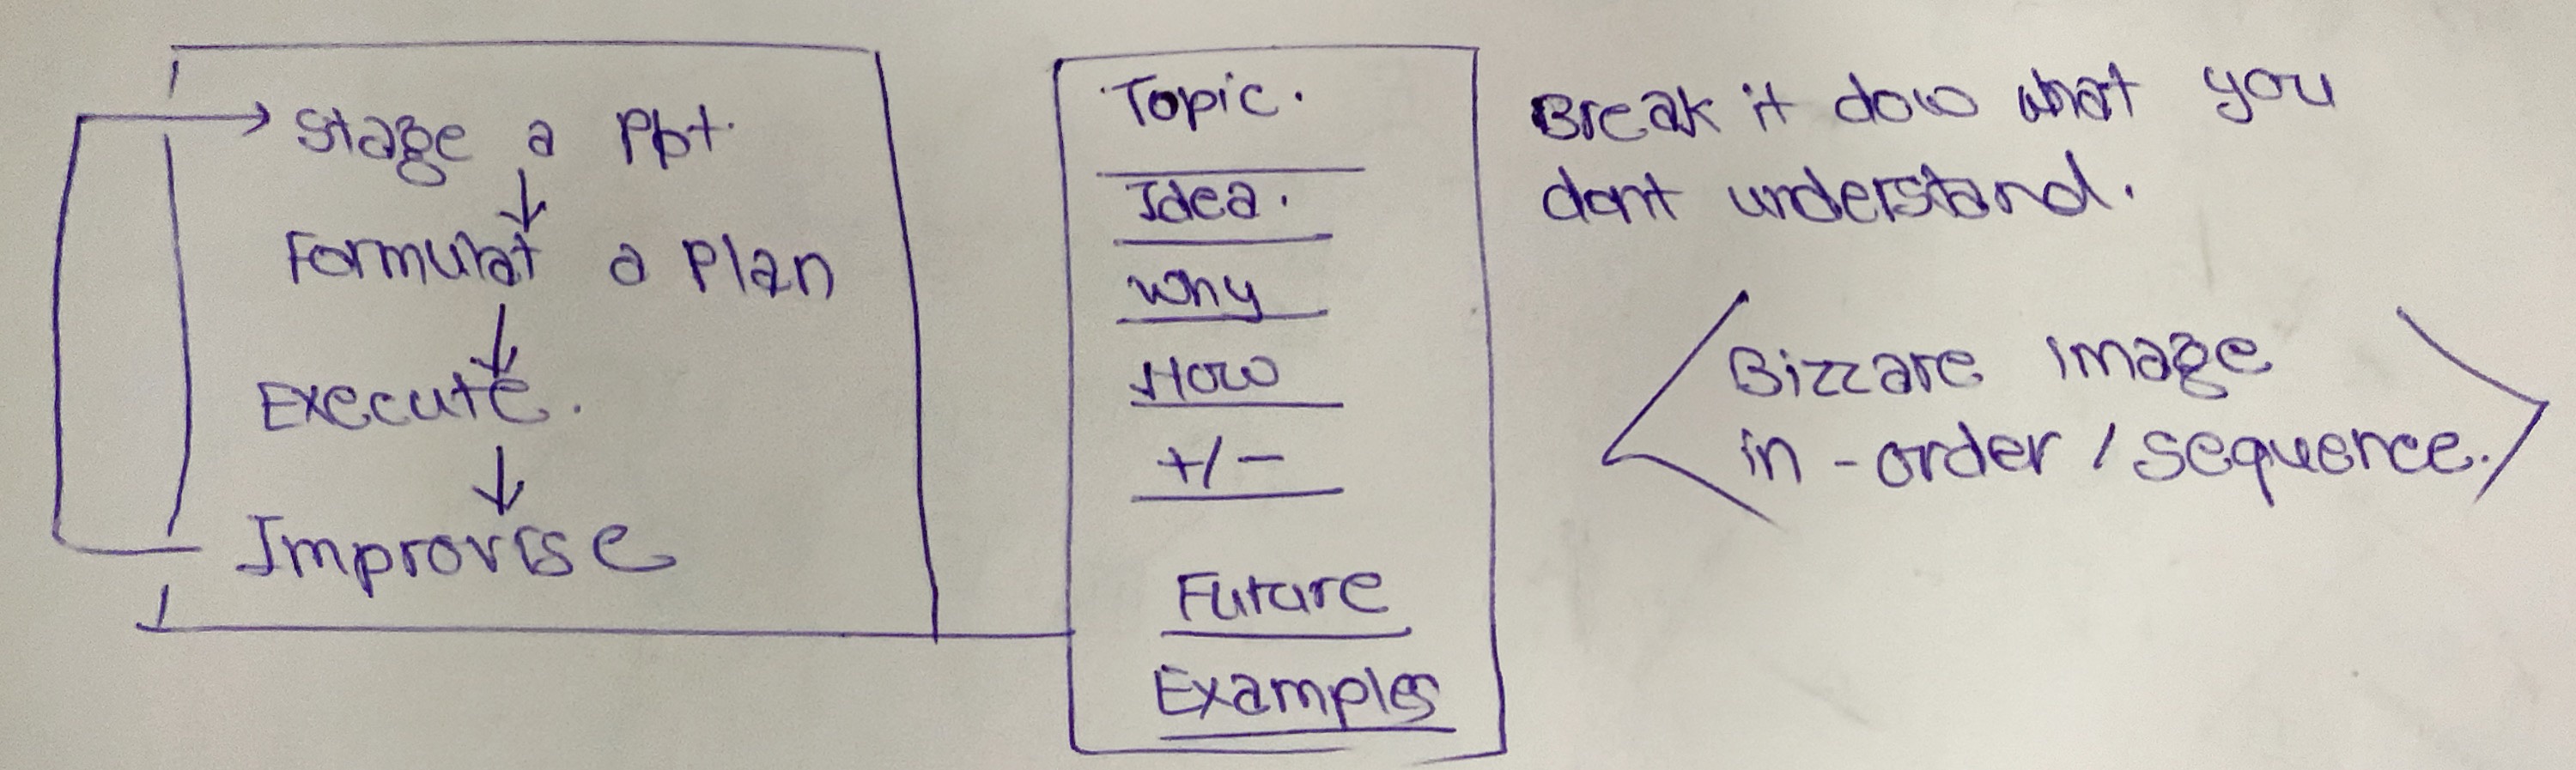 Stage a Ppt.
Formulat a Plan
Execute.
Improvise
Topic.
Idea.
Why
How
+/-
Future
Examples
Break it dow what you
dont understand.
Bizzare image
in-order/sequence.